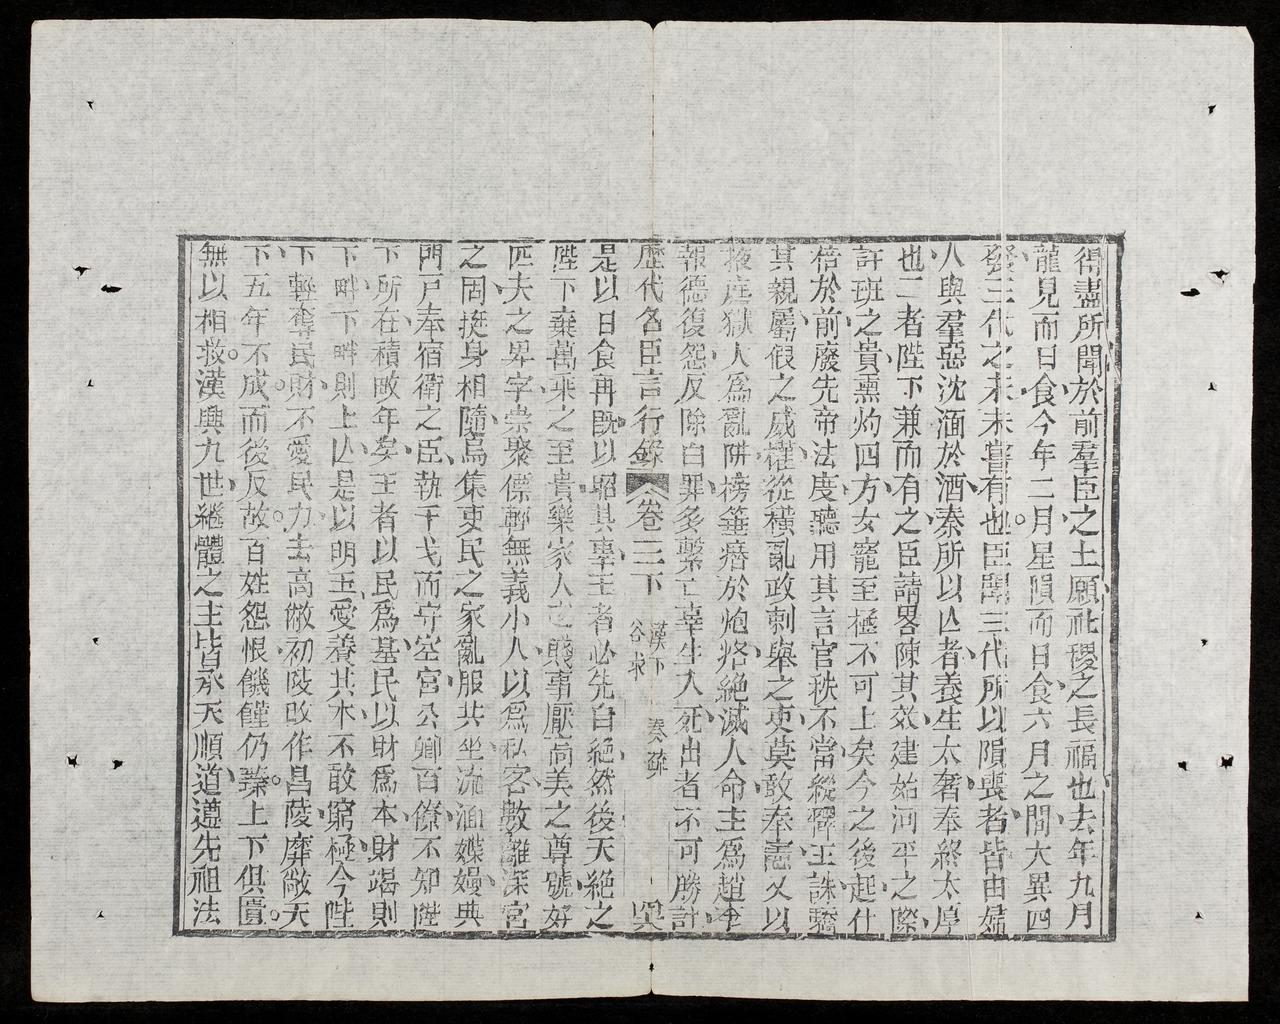 得盡所聞於前羣臣之上願社稷之長福也去年九月
龍見而日食今年二月星隕而日食六月之間大異四
發三代之末未嘗有也臣聞三代所以隕喪者皆由婦
人與羣惡沈湎於酒秦所以亡者養生太奢奉終太厚
也二者陛下兼而有之臣請畧陳其效建始河平之際
許班之貴熏灼四方女寵至極不可上矣今之後起什
倍於前廢先帝法度聽用其言官秩不當縱釋王誅驕
其親屬假之威權從橫亂政刺舉之吏莫敢奉憲又以
掖庭獄人爲亂阱榜箠㿊於炮烙絶滅人命主爲趙李
報德復怨反除白罪多繫亡辜生入死出者不可勝計
歷代名臣言行錄 卷二下 漢下 谷永 奏疏
是以日食再旣以昭其辜王者必先自絶然後天絶之
陛下棄萬乘之至貴樂家人之賤事厭高美之尊號好
匹夫之卑字崇聚僄輕無義小人以爲私客數離深宮
之固挺身相隨烏集吏民之家亂服共坐流湎媟嫚典
門戸奉宿衛之臣執干戈而守空宮公卿百僚不知陛
下所在積敗年矣王者以民爲基民以財爲本財竭則
下畔下畔則上亡是以明王愛養其本不敢窮極今陛
下輕奪民財不愛民力去高敞初陵改作昌陵靡敝天
下五年不成而後反故百姓怨恨饑饉仍臻上下俱匱
無以相救漢興九世繼體之主皆承天順道遵先祖法